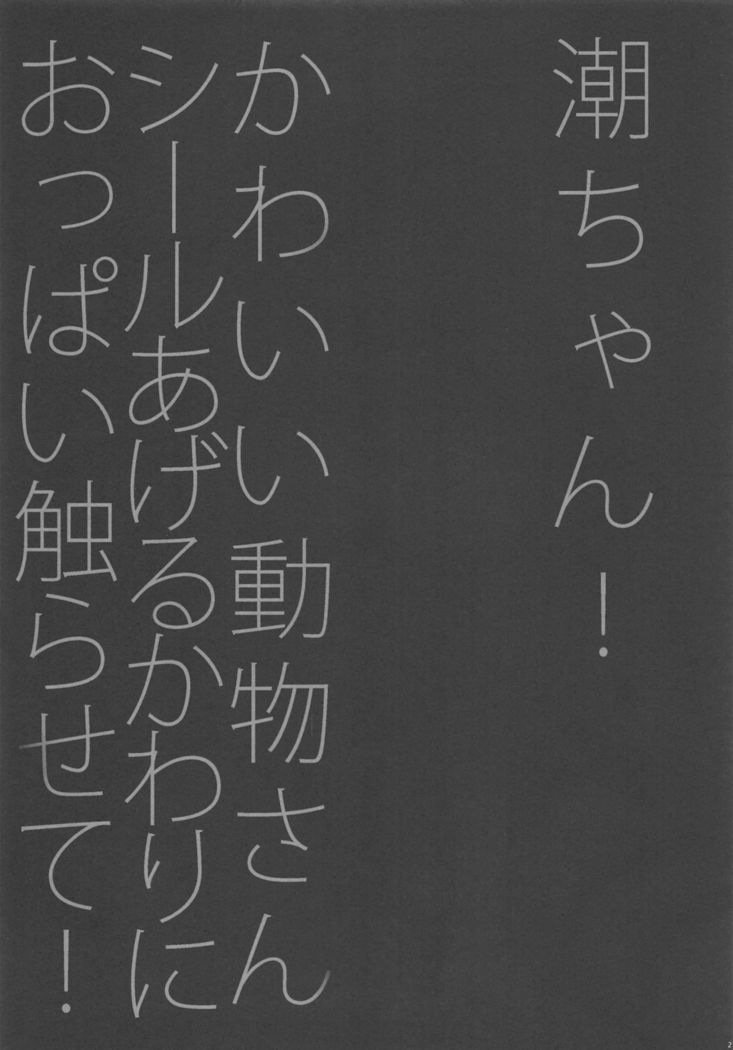 潮ちゃん!
かわいい動物さん
シールあげるかわりに
おっぱい触らせて!
2